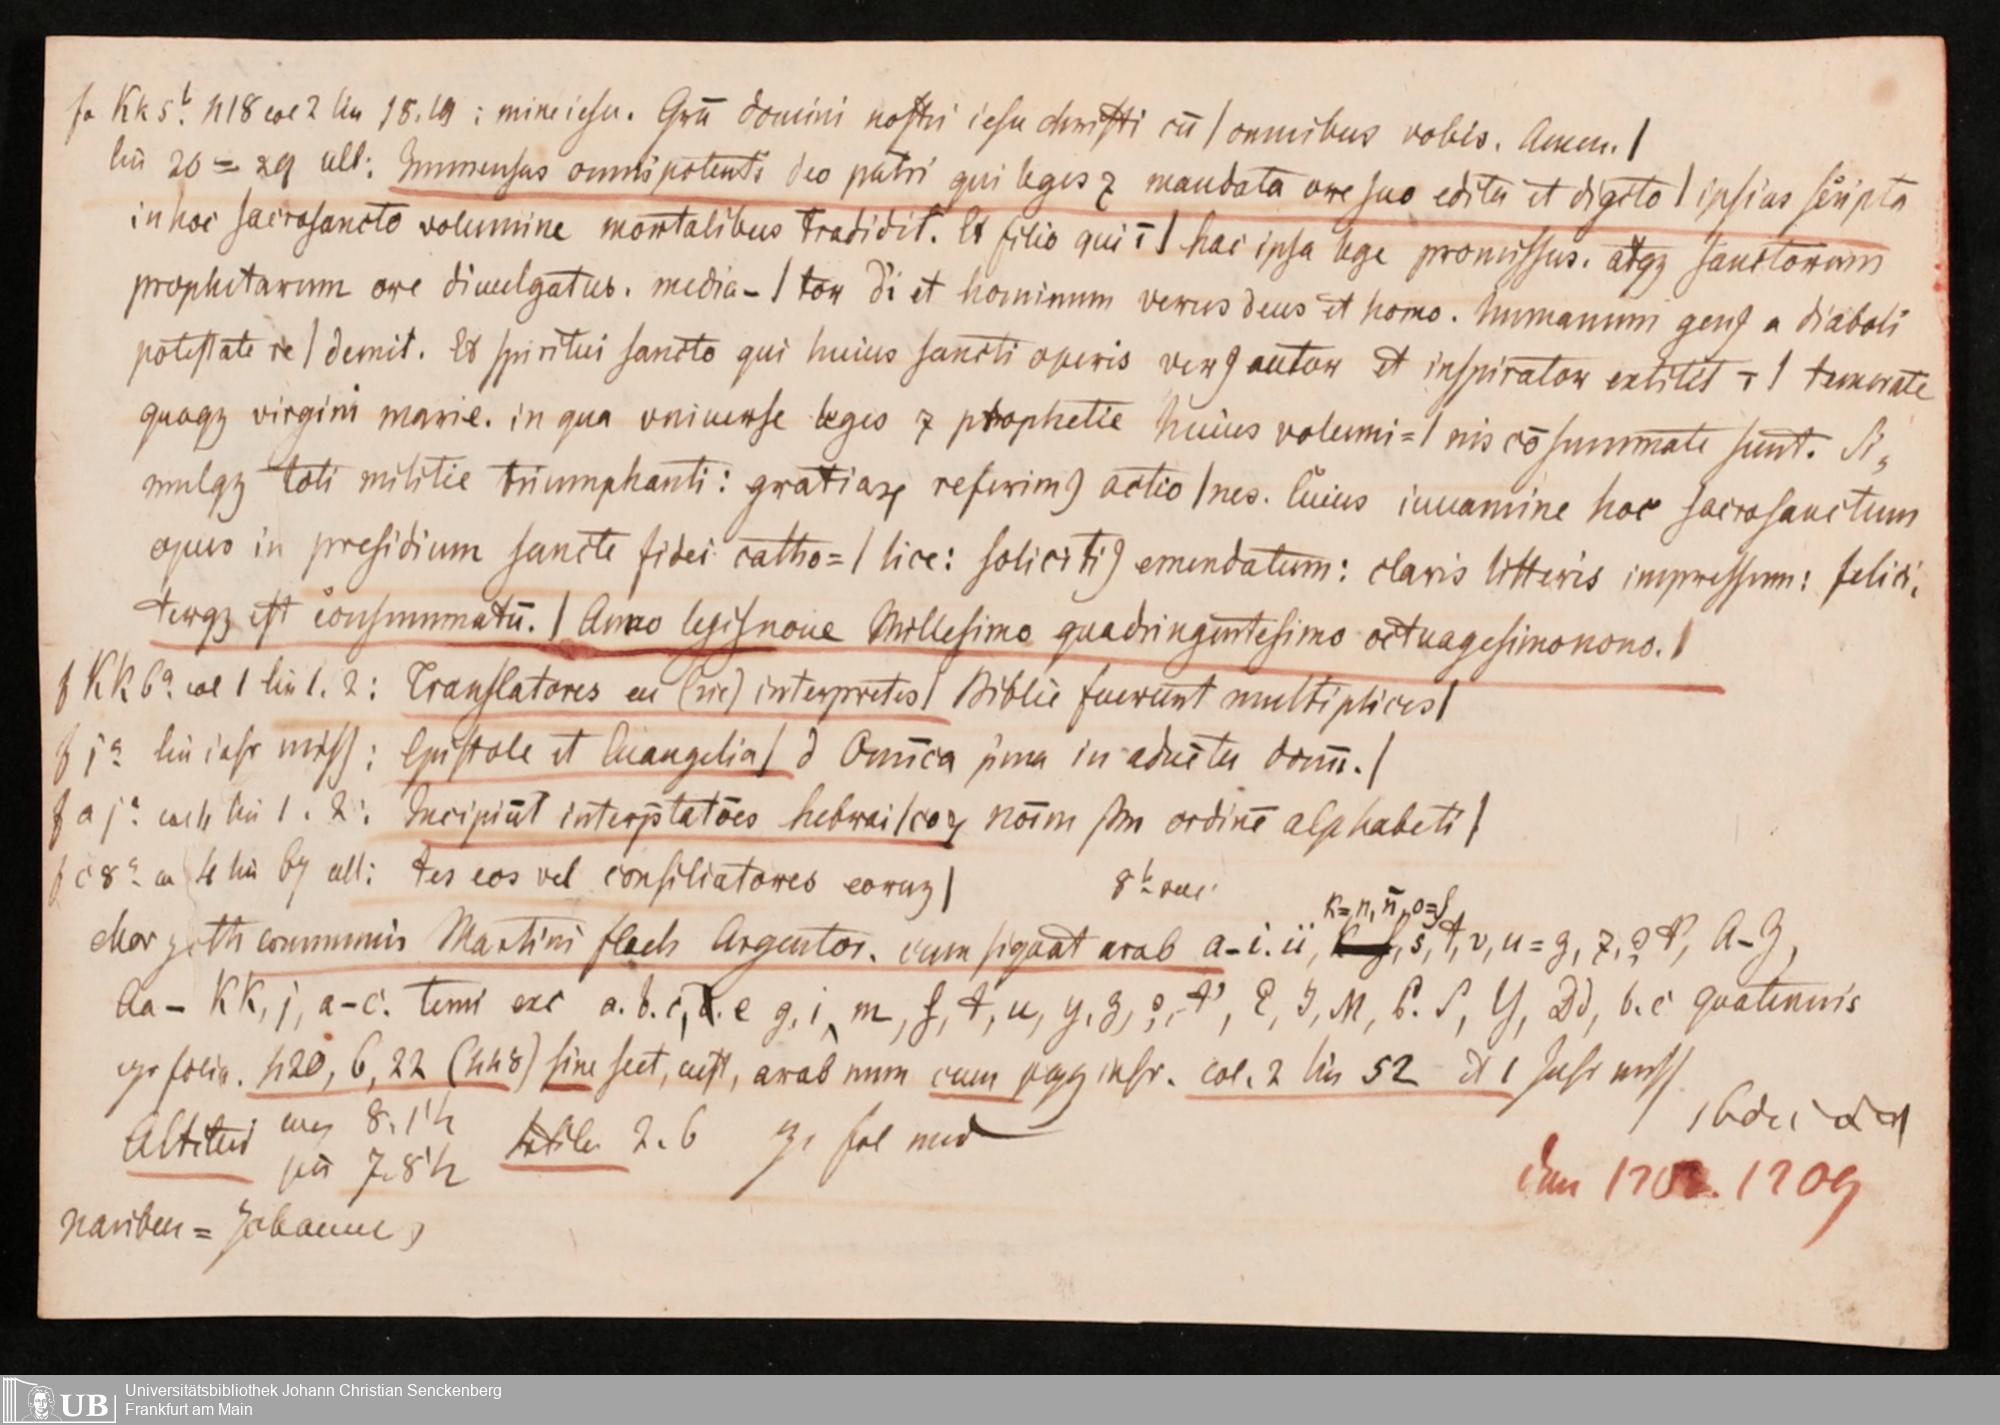 fo Kk 5b. 418 col 2 lin 18.19 : mine iesu. Grā domini nostri iesu christi cū / omnibus vobis. Amen. /
lin 20 = 29 ult: Immensas omnipotenti deo patri qui leges ⁊ mandata ore suo edita et digito / ipsius scripta
in hoc sacrosancto volumine mortalibus tradidit. Et filio qui ī / hac ipsa lege promissus. atqꝫ sanctorum
prophetarum ore diuulgatus. media- / tor di et hominum verus deus et homo. humanum genꝰ a diaboli
potestate re / demit. Et spiritui sancto qui huius sancti operis verꝰ autor et inspirator extitit ī / temerate
quoqꝫ virgini marie. in qua vniuerse leges ⁊ prophetie huius volumi= / nis cōsummate sunt. Si,
mulqꝫ toti militie triumphanti: gratiaꝝ referimꝰ actio / nes. Cuius iuuamine hoc sacrosanctum
opus in presidium sancte fidei catho= / lice: solicitiꝰ emendatum: claris litteris impressum: felici,
terqꝫ est consummatū. / Anno legis noue Millesimo quadringentesimo octuagesimonono. /
f KK 6a. col 1 lin 1. 2: Translatores eu (sic) interpretes / Biblie fuerunt multiplices /
f ja lin infr miss: Epistole et Euangelia / d Omīca p̄ma in aduētu dom̄. /
f a ja. col 4 lin 1. 2: Incipiūt interp̄tatōes hebrai / coꝝ noīm scdm ordinē alphabeti /
f c 8a. co 4 lin 67 ult: tes eos vel consiliatores eorum /
8b vac.
k=n, n̄, o=f
Char goth communis Martini flach Argentor. cum signat arab a-i. ii, s, t, v, u=z, ⁊, A-Z,
Aa - KK, j, a-c. terni exc a. b. c, d. e g, i, m, f, t, u, y, z, E, I, M, P. S, Y, Dd, b. c quaternis
folia. 420, 6, 22 (448) sine sect, cust, arab num cum pagg infr. col. 2 lin 52 et 1 Infr miss
Altitud 8.1½ 2.6 fol med
7.8½
den 1709